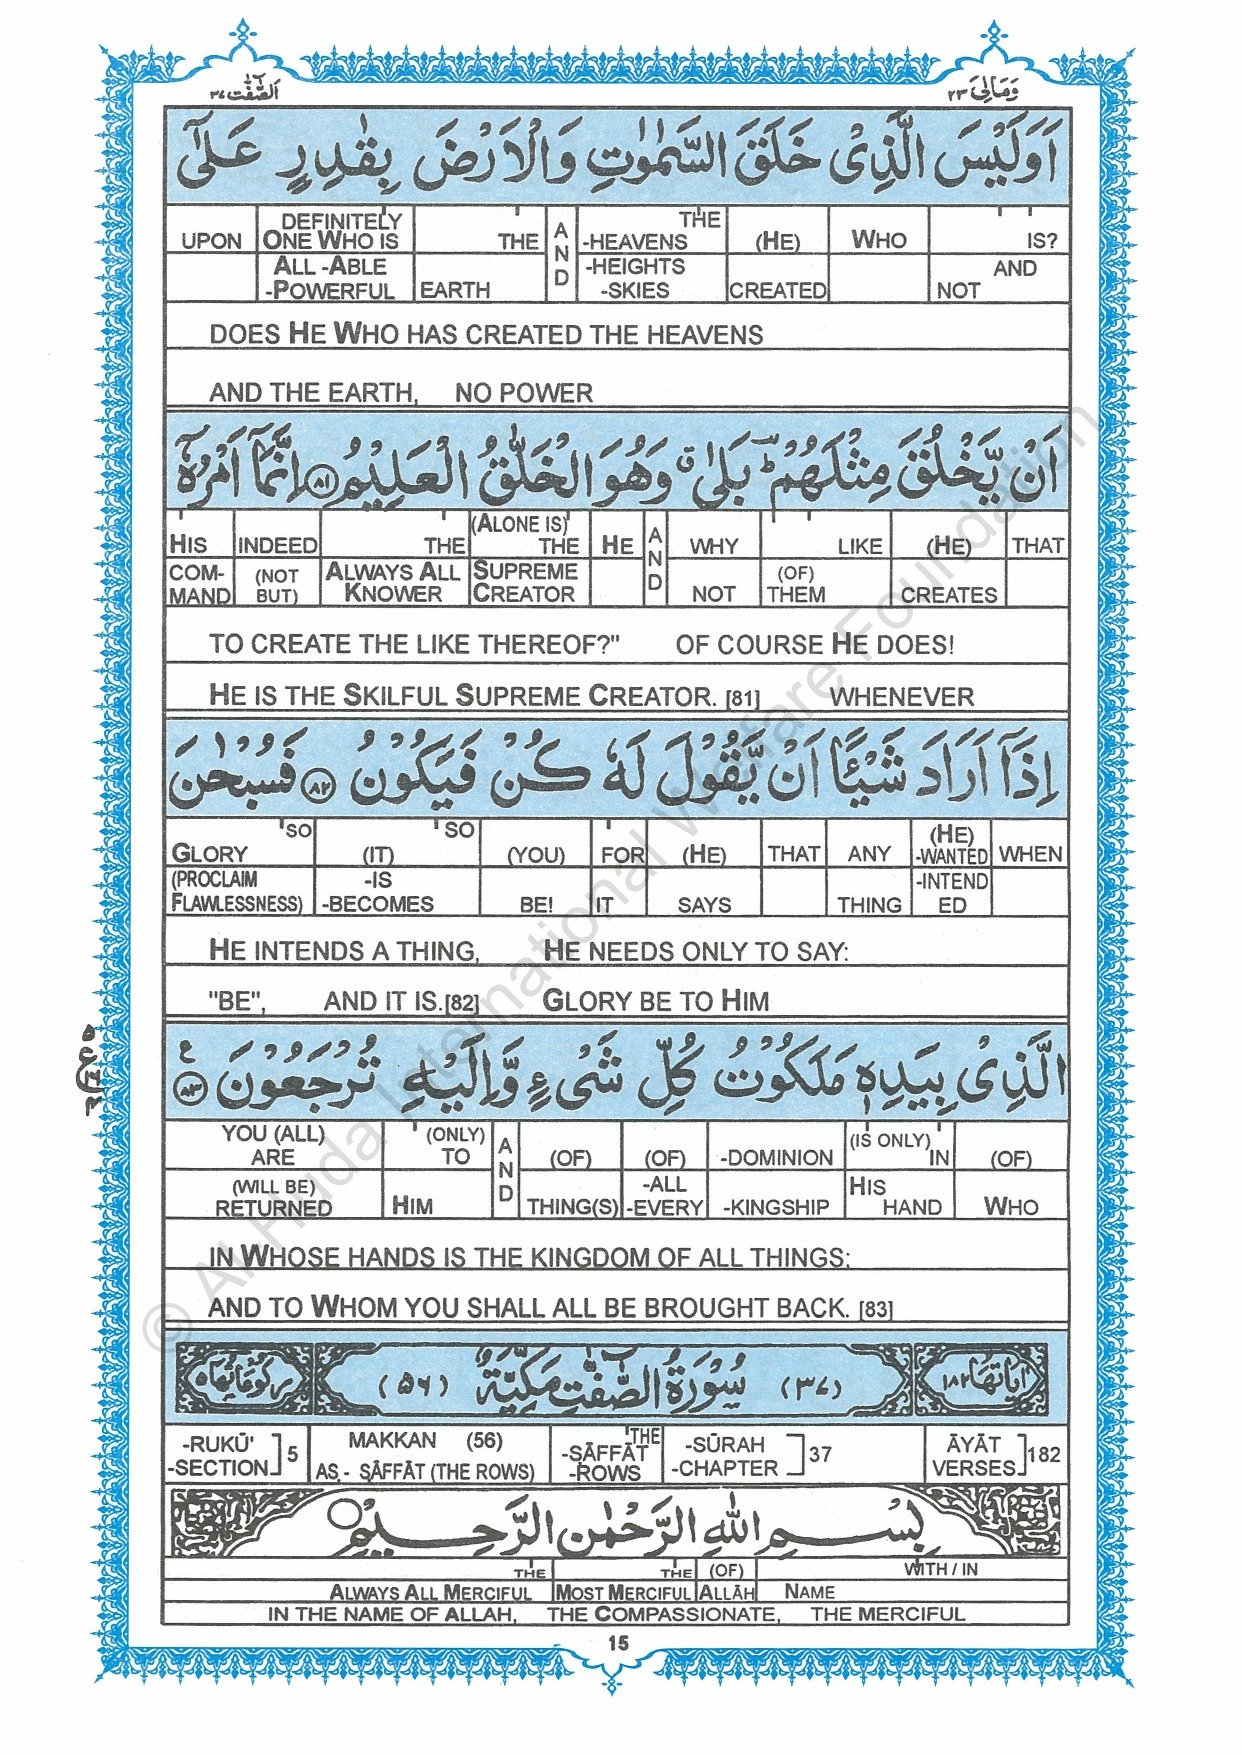 وَمَالِیَ ۲۳
اَلصّٰٓفّٰت ۳۷
اَوَلَيْسَ الَّذِىْ خَلَقَ السَّمٰوٰتِ وَالْاَرْضَ بِقٰدِرٍ عَلٰٓى
UPON DEFINITELY ONE WHO IS THE AND THE -HEAVENS (HE) WHO IS?
ALL -ABLE -POWERFUL EARTH -HEIGHTS -SKIES CREATED AND NOT
DOES HE WHO HAS CREATED THE HEAVENS
AND THE EARTH, NO POWER
اَنْ يَّخْلُقَ مِثْلَهُمْ ؕ بَلٰى ۗ وَهُوَ الْخَلّٰقُ الْعَلِيْمُ ۝۸۱ اِنَّمَآ اَمْرُهٗۤ
HIS INDEED THE (ALONE IS) THE HE AND WHY LIKE (HE) THAT
COM-MAND (NOT BUT) ALWAYS ALL KNOWER SUPREME CREATOR NOT (OF) THEM CREATES
TO CREATE THE LIKE THEREOF?" OF COURSE HE DOES!
HE IS THE SKILFUL SUPREME CREATOR. [81] WHENEVER
اِذَآ اَرَادَ شَيْـًٔا اَنْ يَّقُوْلَ لَهٗ كُنْ فَيَكُوْنُ ۝۸۲ فَسُبْحٰنَ
'SO GLORY 'SO (IT) (YOU) FOR (HE) THAT ANY (HE) -WANTED WHEN
(PROCLAIM FLAWLESSNESS) -IS -BECOMES BE! IT SAYS THING -INTEND ED
HE INTENDS A THING, HE NEEDS ONLY TO SAY:
"BE", AND IT IS.[82] GLORY BE TO HIM
الَّذِىْ بِيَدِهٖ مَلَكُوْتُ كُلِّ شَىْءٍ وَّاِلَيْهِ تُرْجَعُوْنَ ۝۸۳ ع
YOU (ALL) ARE (ONLY) TO AND (OF) (OF) -DOMINION (IS ONLY) IN (OF)
(WILL BE) RETURNED HIM THING(S) -ALL -EVERY -KINGSHIP HIS HAND WHO
IN WHOSE HANDS IS THE KINGDOM OF ALL THINGS:
AND TO WHOM YOU SHALL ALL BE BROUGHT BACK. [83]
اٰيَاتُهَا ۱۸۲ (۳۷) سُوْرَةُ الصّٰٓفّٰتِ مَكِّيَّةٌ (۵۶) رُكُوْعَاتُهَا ۵
-RUKŪ' -SECTION] 5 MAKKAN (56) 'THE -SĀFFĀT -SŪRAH -CHAPTER ]37 ĀYĀT VERSES ]182
AS - SĀFFĀT (THE ROWS) -ROWS
بِسْمِ اللهِ الرَّحْمٰنِ الرَّحِيْمِ
THE THE (OF) WITH / IN
ALWAYS ALL MERCIFUL MOST MERCIFUL ALLĀH NAME
IN THE NAME OF ALLAH, THE COMPASSIONATE, THE MERCIFUL
15
© Al-Huda International Welfare Foundation